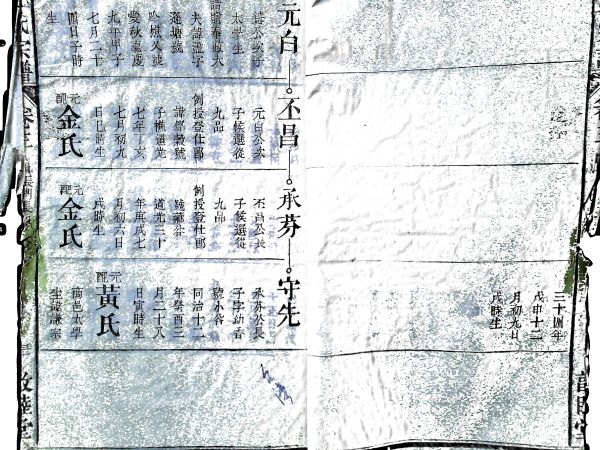 三十四年
戊申十二
月初九日
戌時生
元白
公次子
太學生
夫諱澧字
蓮塘號
吟樵又號
愛秋嘉慶
九年甲子
七月二十
四日子時
生
丕昌
元白公次
子候選從
九品
例授登仕郎
號
子樵道光
七年丁亥
七月初九
日巳時生
元配
金氏
承芬
丕昌公長
子候選從
九品
例授登仕郎
道光三十
年庚戌七
月初六日
戌時生
元配
金氏
守先
承芬公長
子字幼香
號小谷
同治十二
年癸酉三
月二十八
日寅時生
元配
黃氏
南邑太學
生諱謙宗
氏宗譜
卷三
敦睦堂